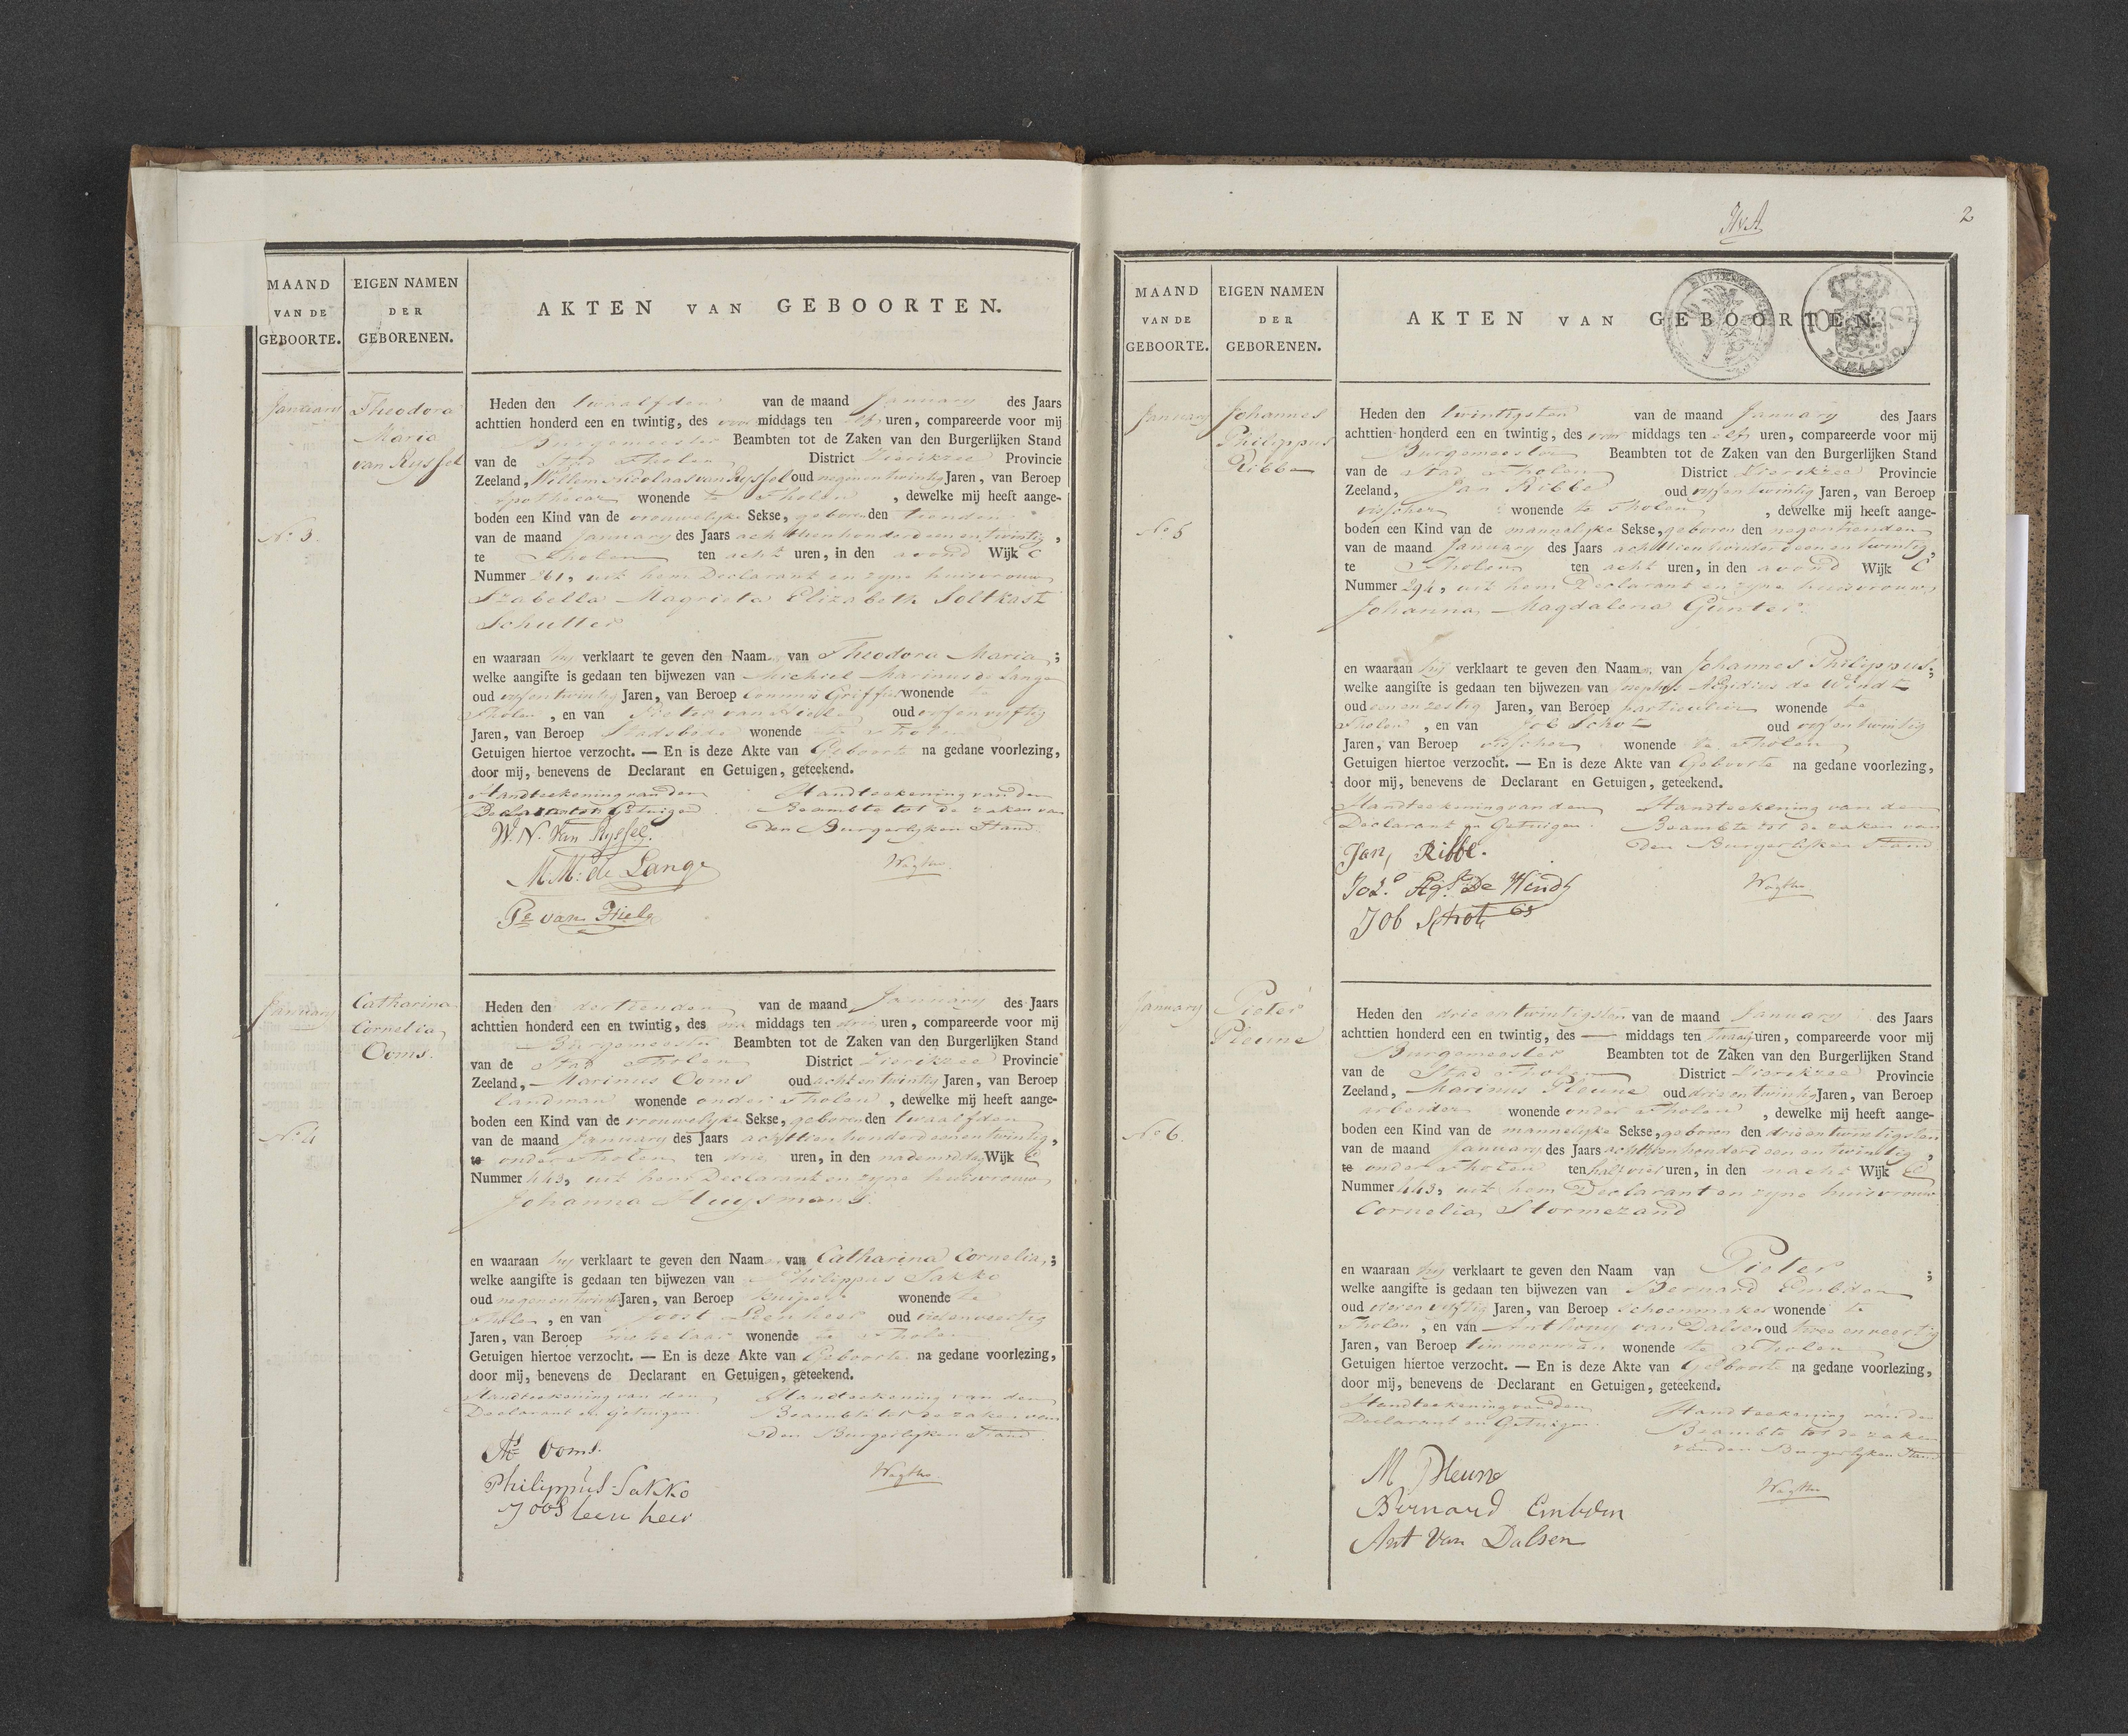 MAAND
VAN DE
GEBOORTE.
EIGEN NAMEN
DER
GEBORENEN.
AKTEN VAN GEBOORTEN.
January
Theodora
Maria
van Rijssel
No 3.
Heden den twaalfden van de maand January des Jaars
achttien honderd een en twintig, des voor middags ten elf uren, compareerde voor mij
Burgemeester Beambten tot de Zaken van den Burgerlijken Stand
van de Stad Tholen District Zierikzee Provincie
Zeeland, Willem Nicolaas van Rijssel oud negenentwintig Jaren, van Beroep
Apothecar wonende te Tholen, dewelke mij heeft aange-
boden een Kind van de vrouwelyke Sekse, geboren den tienden
van de maand January des Jaars achttienhonderdeenentwintig,
te Tholen ten acht uren, in den avond Wijk C
Nummer 261, uit hem Declarant en zyne huisvrouw
Izabella Magrieta Elizabeth Soltkast
Schutter
en waaraan hij verklaart te geven den Naam van Theodora Maria;
welke aangifte is gedaan ten bijwezen van Michiel Marinus de Lange
oud vijfentwintig Jaren, van Beroep Commis Griffier wonende te
Tholen, en van Pieter van Hiele oud vijfenvijftig
Jaren, van Beroep Stadsbode wonende te Tholen
Getuigen hiertoe verzocht. — En is deze Akte van Geboorte na gedane voorlezing,
door mij, benevens de Declarant en Getuigen, geteekend.
Handteekening van den
Declarant en Getuigen
Handteekening van den
Beambte tot de zaken van
den Burgerlyken Stand
W. N. Van Rijssel.
M. M. de Lange
Pr van Hiele
January
Catharina
Cornelia
Ooms.
No 4
Heden den dertienden van de maand January des Jaars
achttien honderd een en twintig, des na middags ten drie uren, compareerde voor mij
Burgemeester Beambten tot de Zaken van den Burgerlijken Stand
van de Stad Tholen District Zierikzee Provincie
Zeeland, Marinus Ooms oud achtentwintig Jaren, van Beroep
landman wonende onder Tholen, dewelke mij heeft aange-
boden een Kind van de vrouwelyke Sekse, geboren den twaalfden
van de maand January des Jaars achttienhonderdeenentwintig,
te onder Tholen ten drie uren, in den nademiddag Wijk E
Nummer 443, uit hem Declarant en zyne huisvrouw
Johanna Huysmans.
en waaraan hij verklaart te geven den Naam van Catharina Cornelia;
welke aangifte is gedaan ten bijwezen van Philippus Sakko
oud negenentwintig Jaren, van Beroep kuiper wonende te
Tholen, en van Joost Leenheer oud vierenveertig
Jaren, van Beroep metselaar wonende te Tholen
Getuigen hiertoe verzocht. — En is deze Akte van Geboorte na gedane voorlezing,
door mij, benevens de Declarant en Getuigen, geteekend.
Handteekening van den
Declarant en Getuigen
Handteekening van den
Beambte tot de zaken van
den Burgerlyken Stand
Ms Ooms.
Philippus Sakko
Joos leen heer
2
MAAND
VAN DE
GEBOORTE.
EIGEN NAMEN
DER
GEBORENEN.
AKTEN VAN GEBOORTEN.
ZEELAND
January
Johannes
Philippus
Ribbe
No 5
Heden den twintigsten van de maand January des Jaars
achttien honderd een en twintig, des voor middags ten elf uren, compareerde voor mij
Burgemeester Beambten tot de Zaken van den Burgerlijken Stand
van de Stad Tholen District Zierikzee Provincie
Zeeland, Jan Ribbe oud vijfentwintig Jaren, van Beroep
visscher wonende te Tholen, dewelke mij heeft aange-
boden een Kind van de mannelyke Sekse, geboren den negentienden
van de maand January des Jaars achttienhonderdeenentwintig,
te Tholen ten acht uren, in den avond Wijk C
Nummer 294, uit hem Declarant en zyne huisvrouw
Johanna Magdalena Gunter
en waaraan hij verklaart te geven den Naam van Johannes Philippus;
welke aangifte is gedaan ten bijwezen van Josephus AEgidius de Windt
oud eenenzestig Jaren, van Beroep particulier wonende te
Tholen, en van Job Schot oud vijfentwintig
Jaren, van Beroep visscher wonende te Tholen
Getuigen hiertoe verzocht. — En is deze Akte van Geboorte na gedane voorlezing,
door mij, benevens de Declarant en Getuigen, geteekend.
Handteekening van den
Declarant en Getuigen.
Handteekening van den
Beambte tot de zaken van
den Burgerlyken Stand
Jan, Ribbe.
De Windt
Job Schot
January
Pieter
Pleune
No 6.
Heden den drieentwintigsten van de maand January des Jaars
achttien honderd een en twintig, des — middags ten twaalf uren, compareerde voor mij
Burgemeester Beambten tot de Zaken van den Burgerlijken Stand
van de Stad Tholen District Zierikzee Provincie
Zeeland, Marinus Pleune oud drieentwintig Jaren, van Beroep
arbeider wonende onder Tholen, dewelke mij heeft aange-
boden een Kind van de mannelyke Sekse, geboren den drieentwintigsten
van de maand January des Jaars achttienhonderdeenentwintig,
te onder Tholen ten half vier uren, in den nacht Wijk E
Nummer 443, uit hem Declarant en zyne huisvrouw
Cornelia Stormezand
en waaraan hij verklaart te geven den Naam van Pieter;
welke aangifte is gedaan ten bijwezen van Bernard Embden
oud vierenvijftig Jaren, van Beroep Schoenmaker wonende te
Tholen, en van Anthony van Dalsen oud tweeenveertig
Jaren, van Beroep timmerman wonende te Tholen
Getuigen hiertoe verzocht. — En is deze Akte van Geboorte na gedane voorlezing,
door mij, benevens de Declarant en Getuigen, geteekend.
Handteekening van den
Declarant en Getuigen.
Handteekening van den
Beambte tot de zaken
van den Burgerlyken Stand
M Pleune
Bernard Embden
Ant Van Dalsen